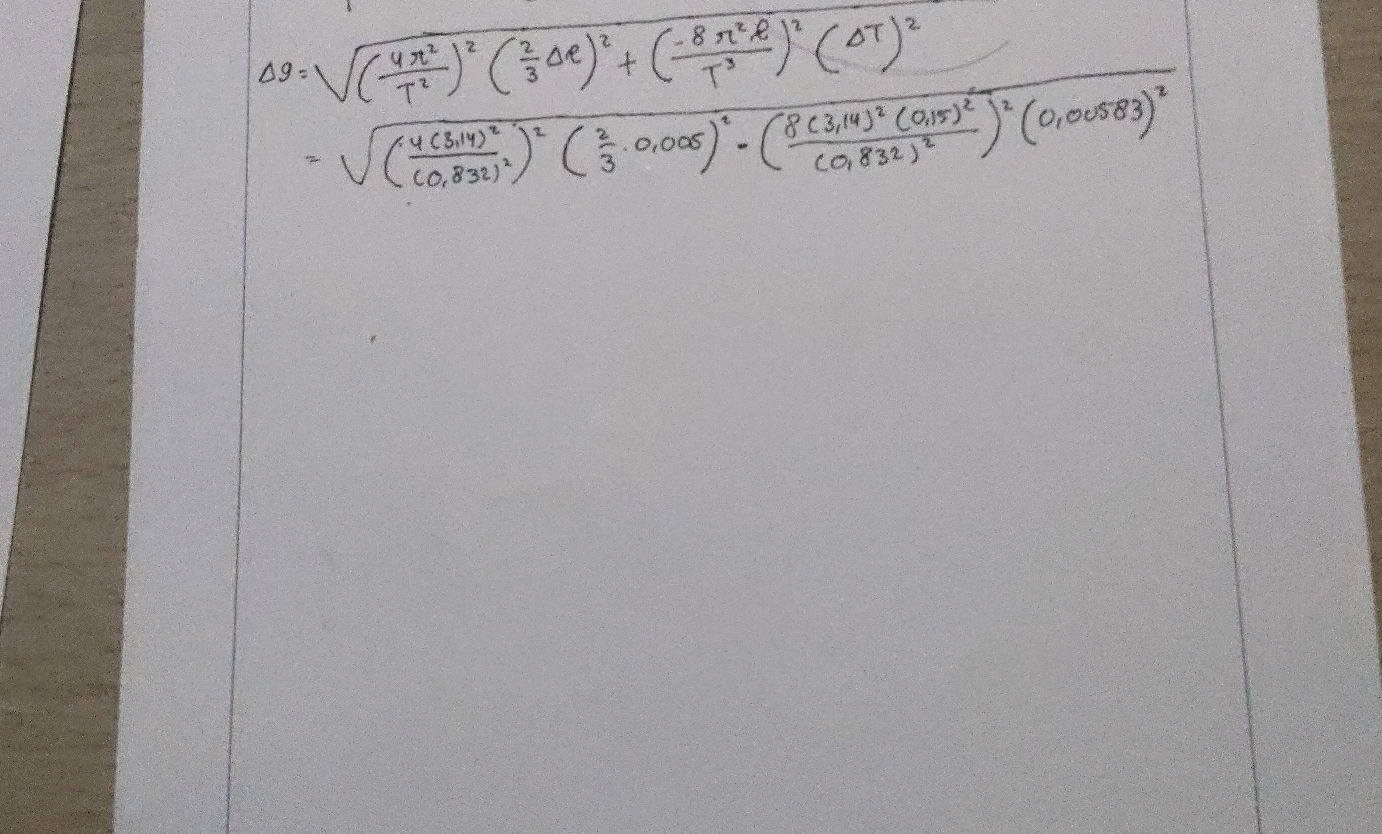 Δg = √((4π²/T²)² (2/3 Δℓ)² + (-8π²ℓ/T³)² (ΔT)²)
= √((4(3,14)²/(0,832)²)² (2/3 . 0,005)² - (8(3,14)² (0,15)²/(0,832)²)² (0,00583)²)